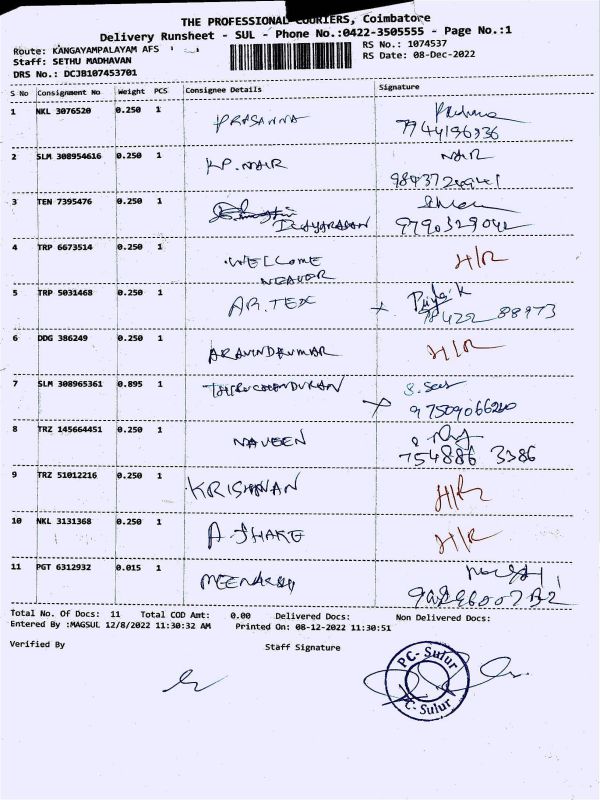 THE PROFESSIONAL COURIERS, Coimbatore
Delivery Runsheet - SUL - Phone No.:0422-3505555 - Page No.:1
Route: KANGAYAMPALAYAM AFS
RS No.: 1074537
Staff: SETHU MADHAVAN
RS Date: 08-Dec-2022
DRS No.: DCJB107453701
S No Consignment No Weight PCS Consignee Details Signature
1 NKL 3076520 0.250 1 PRASANNA
7744196336
2 SLM 308954616 0.250 1 KP. NAIR NAIR
3 TEN 7395476 0.250 1
9790329042
4 TRP 6673514 0.250 1 WELCOME H/R
WEAVER
5 TRP 5031468 0.250 1 AR. TEX Priya. K
78422 88973
6 DDG 386249 0.250 1 ARAVINDKUMAR H/R
7 SLM 308965361 0.895 1
9750906620
8 TRZ 145664451 0.250 1 NAVEEN
754886 3386
9 TRZ 51012216 0.250 1 KRISHNAN H/R
10 NKL 3131368 0.250 1 H/R
11 PGT 6312932 0.015 1 MEENAKSHI
Total No. Of Docs: 11 Total COD Amt: 0.00 Delivered Docs: Non Delivered Docs:
Entered By :MAGSUL 12/8/2022 11:30:32 AM Printed On: 08-12-2022 11:30:51
Verified By Staff Signature
PC- Sulur
PC- Sulur